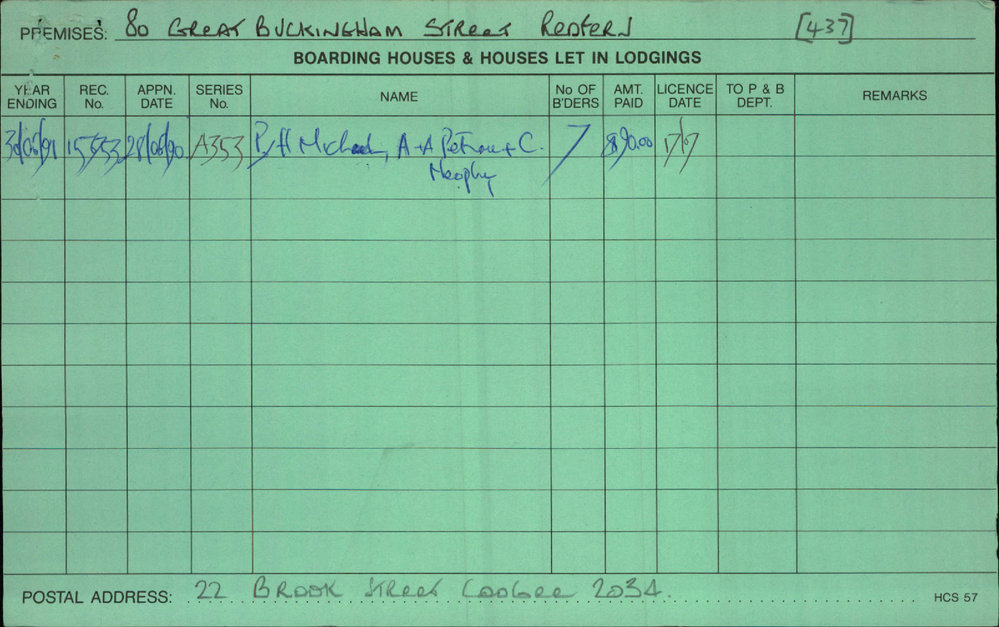 PREMISES: 80 GREAT BUCKINGHAM STREET REDFERN [437]
BOARDING HOUSES & HOUSES LET IN LODGINGS
YEAR ENDING REC. No. APPN. DATE SERIES No. NAME No OF B'DERS AMT. PAID LICENCE DATE TO P & B DEPT. REMARKS
30/06/91 15553 28/06/90 A353 P/H Michael, A + A Petrou + C. 7 $90.00 17/7
POSTAL ADDRESS: 22 BROOK STREET COOGEE 2034.
HCS 57